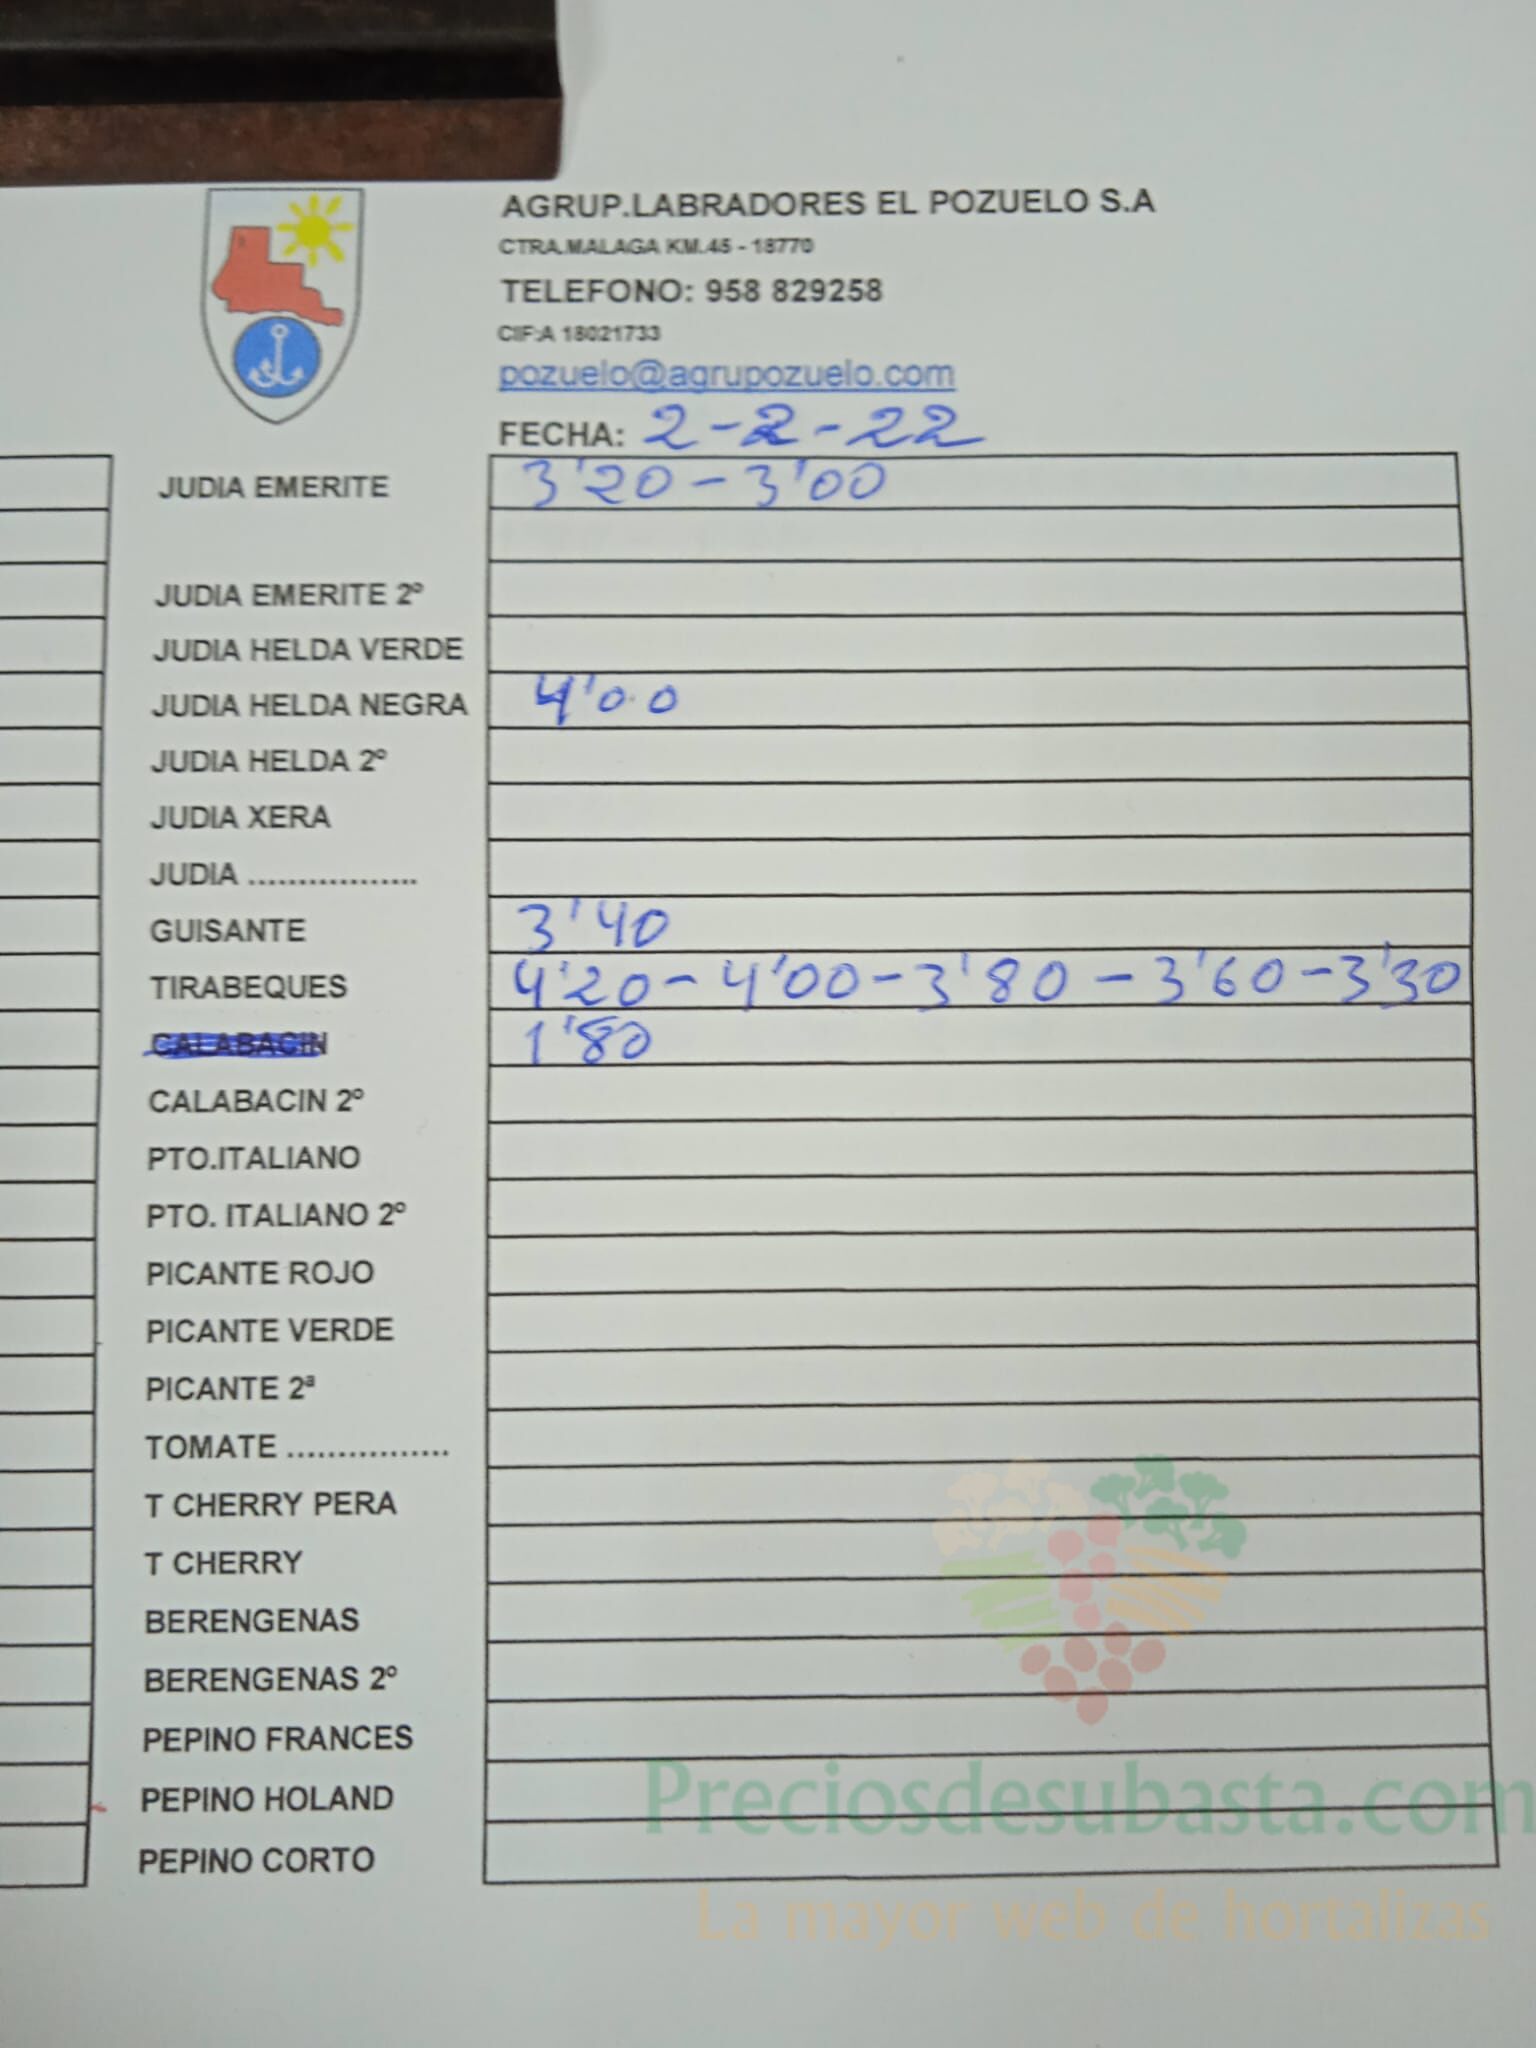 AGRUP.LABRADORES EL POZUELO S.A
CTRA.MALAGA KM.45 - 18770
TELEFONO: 958 829258
CIF:A 18021733
pozuelo@agrupozuelo.com
FECHA: 2-2-22
JUDIA EMERITE 3'20 - 3'00
JUDIA EMERITE 2º
JUDIA HELDA VERDE
JUDIA HELDA NEGRA 4'00
JUDIA HELDA 2º
JUDIA XERA
JUDIA .................
GUISANTE 3'40
TIRABEQUES 4'20 - 4'00 - 3'80 - 3'60 - 3'30
CALABACIN 1'80
CALABACIN 2º
PTO.ITALIANO
PTO. ITALIANO 2º
PICANTE ROJO
PICANTE VERDE
PICANTE 2ª
TOMATE ................
T CHERRY PERA
T CHERRY
BERENGENAS
BERENGENAS 2º
PEPINO FRANCES
PEPINO HOLAND
PEPINO CORTO
Preciosdesubasta.com
La mayor web de hortalizas